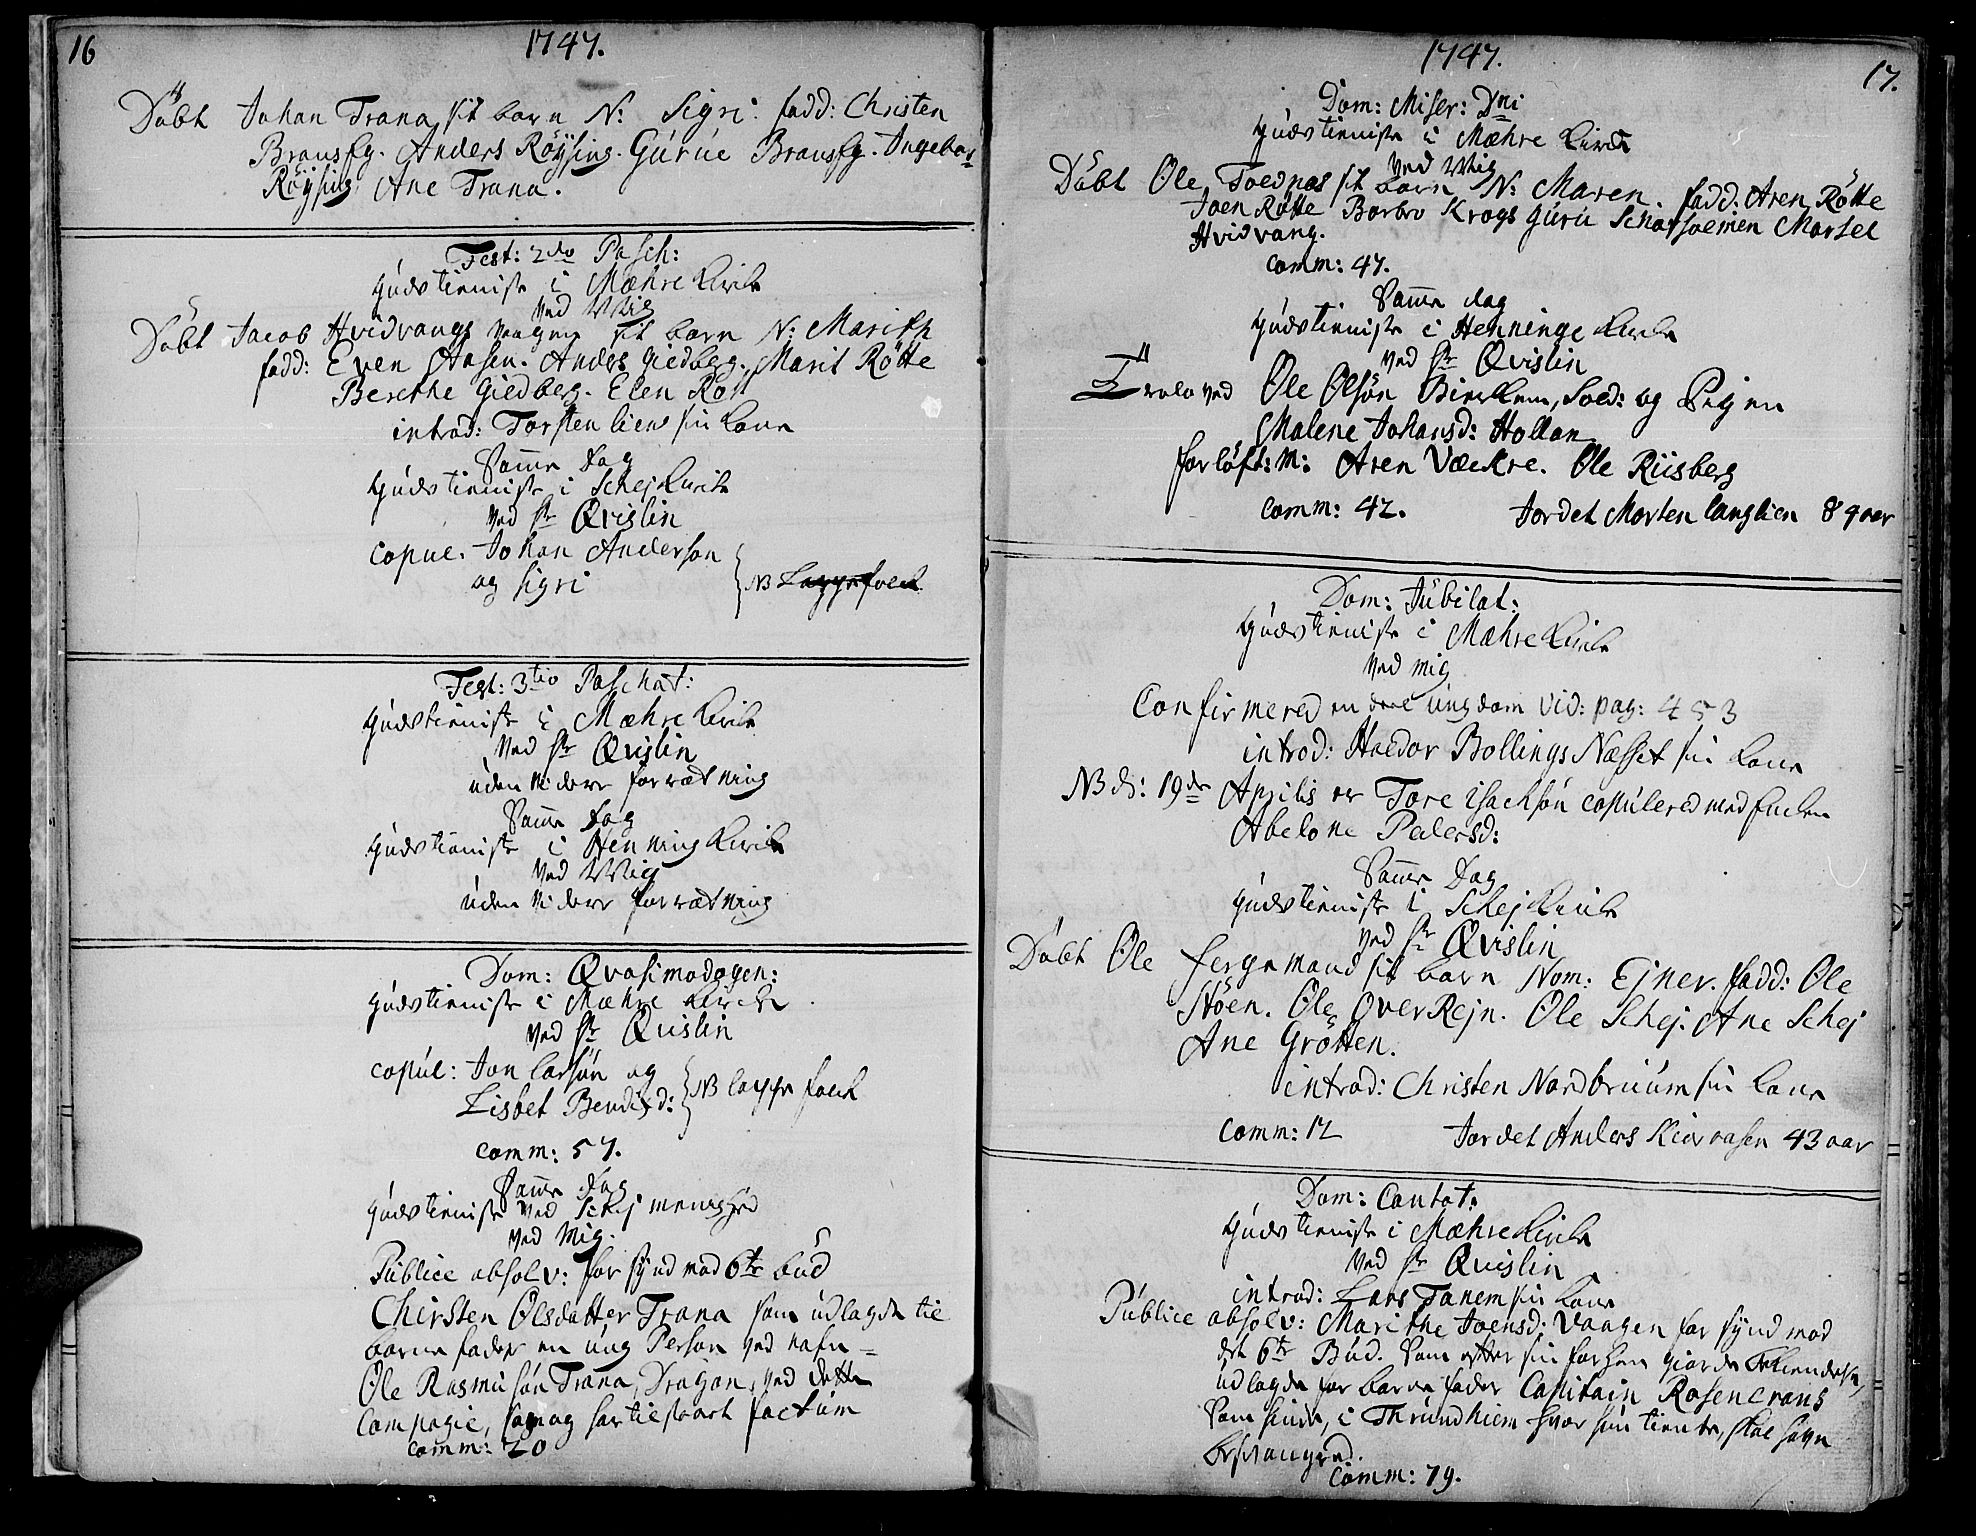 16
1747.
Döbt Johan Trana sit barn N: Sigri. fadd: Christen
Bransfg. Anders Röysing. Gurúe Bransfg. Ingebor=
Röysing. Ane Trana.
Fest: 2do Pasch:
Gúdstieniste i Mæhre Kirke
ved Mig
Döbt Jacob Hvidvangs vaagen sit barn N: Marithe
fadd: Even Aasen. Anders Giedberg. Marit Rötte
Berethe Giedberg. Elen Röt
introd: Torsten liens sin Kone
Samme Dag
Gúdstieniste i Schej Kirke
ved Hr Qvislin
copul. Johan Anderson
og Sigri
NB Lappefolck
Fest: 3tio Paschat:
Gúdstieniste i Mæhre Kirke
ved Hr Qvislin
úden videre forrætning
Samme Dag
Gúdstieniste i Henning Kirke
ved Mig
úden videre forrætning
Dom: Qvasimodogen:
Gúdstieniste i Mæhre Kirke
ved Hr Quislin
copúl: Jon larsön og
Lisbet Bendixd:
NB lappe folck
comm: 57.
Samme dag
Gúdstieniste ved Schej menighed
ved Mig.
Públice absolv: for synd mod 6te búd
Chirsten Olsdatter Trana som údlagde til
barne fader en úng Person ved nafn =
Ole Rasmusön Trana, Dragon ved dette
Compagie, som og har tilstaaet factúm
comm: 20
1747.
17.
Dom: Miser: Dni
Gúdstieniste i Mæhre Kirke
ved Mig
Döbt Ole Toednes sit barn N: Maren. fadd: Aren Rötte
Joen Rötte Barbro Krogs Gúru Schatsoemen Marsel
Hvidvang.
comm: 47.
Samme dag
Gúdstieniste i Henninge Kirke
ved Hr Qvislin
Troloved Ole Olsön Birckem, Sold: og Pigen
Malene Johansd: Hollan
forlöft: M: Aren Væckre. Ole Riisberg
comm: 42. Jordet Morten langlien 89 aar
Dom: Júbilat:
Gúdstieniste i Mæhre Kirke
ved mig
Confirmered en deel úngdom vid: pag: 453
introd: Haldor Bollings Næsset sin Kone
NB d: 19de Aprilis er Tore Isachsön copúlered med Encken
Abelone Pedersd:
Samme Dag
Gúdstieniste i Schej Kirke
ved Hr Qvislin
Döbt Ole fergemand sit barn Nom: Ejner. fadd: Ole
Stöen. Ole OverRejn. Ole Schej. Ane Schej
Ane Grötten.
introd: Christen Nordbrúúm sin Kone
comm: 12 Jordet Anders Kiernasen 43 aar
Dom: Cantat:
Gúdstieniste i Mæhre Kirke
ved Hr Quislin
introd: Lars Tanem sin Kone
Públice absolv: Marithe Joensd: Vaagen for synd mod
det 6te Búd. Som efter sin for ham giorde bekiendelse,
údlagde for barne fader Capitain Rosencrans
som hún, i Thrúndhiem hvor hún tiente, skal havn
besvangred.
comm: 79.